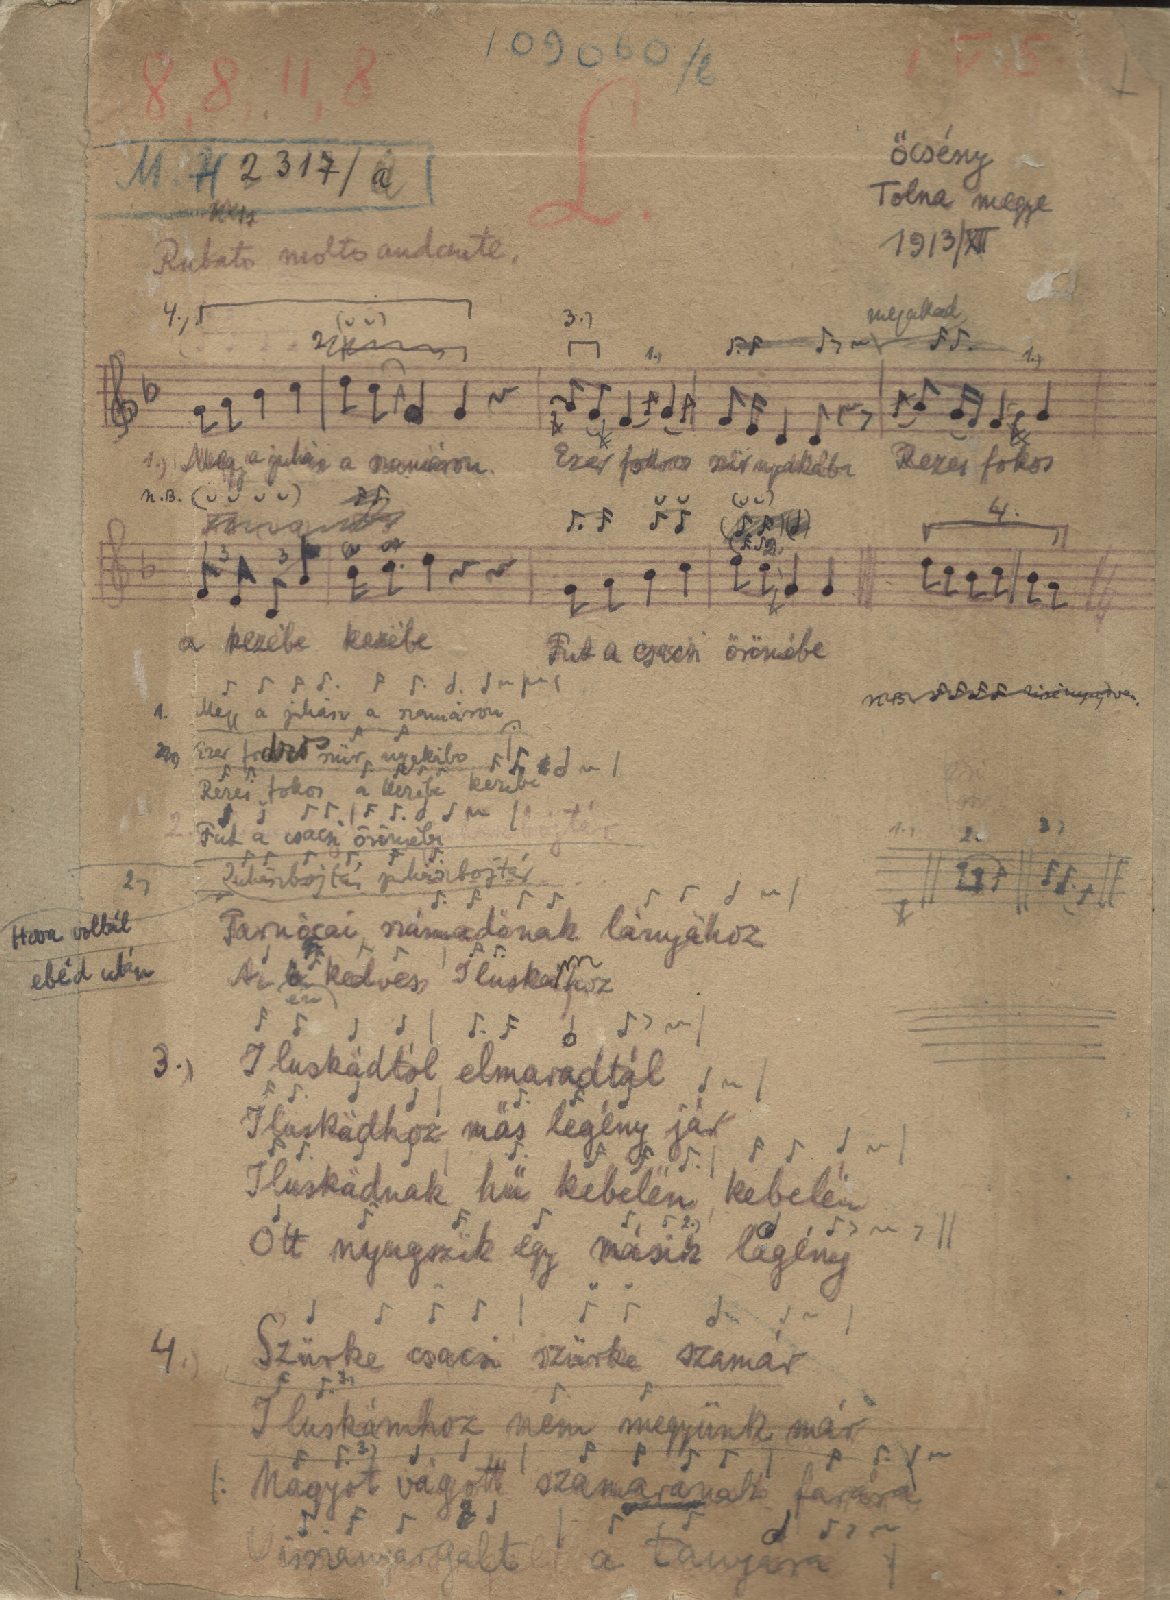 109060/2
8, 8, 11, 8
IV. 5.
1
L.
M. H 2317/a
Őcsény
Tolna megye
1913/XII
Rubato molto andante.
4.,
3.,
1.,
megakad
1.,
1.) Megy a juhász a szamáron.
Ezer fokos szür nyakába
Rezes fokos
N.B.
3 3
4.
a kezébe kezébe
Fut a csacsi örömébe
N.B.
1. Megy a juhász a szamáron
szür nyakába
Rezes fokos a kezébe kezébe
Fut a csacsi örömébe
2.
2., Juhászbojtár juhászbojtár
1., 2. 3,
Hova voltál
ebéd után
Farnócai számadónak lányához
Az én kedves Iluskámhoz
3.) Iluskádtól elmaradtál
Iluskádhoz más legény jár
Iluskádnak hű kebelén, kebelén
Ott nyugszik egy másik legény
4.) Szürke csacsi szürke szamár
Iluskámhoz nem megyünk már
|: Nagyot vágott szamarának farára
Visszanyargalt a tanyára